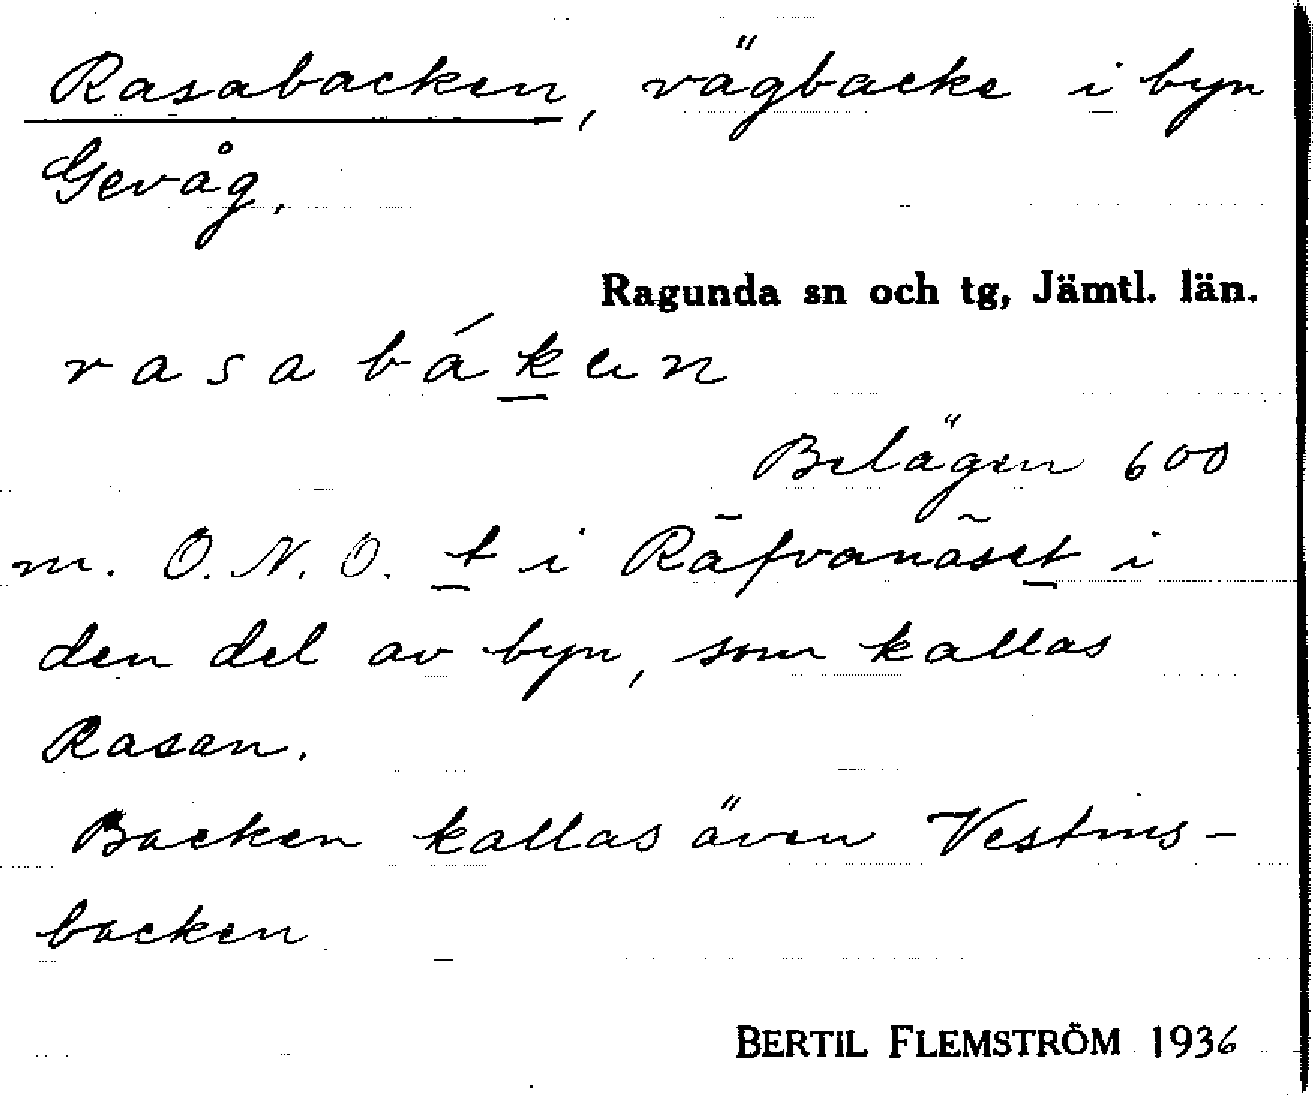 Rasabacken, vägbacke i byn
Gevåg.
Ragunda sn och tg, Jämtl. län.
rasabáken
Belägen 600
m. O.N.O. t i Räfvanäset i
den del av byn, som kallas
Rasan.
Backen kallas även Vestins-
backen
BERTIL FLEMSTRÖM 1936